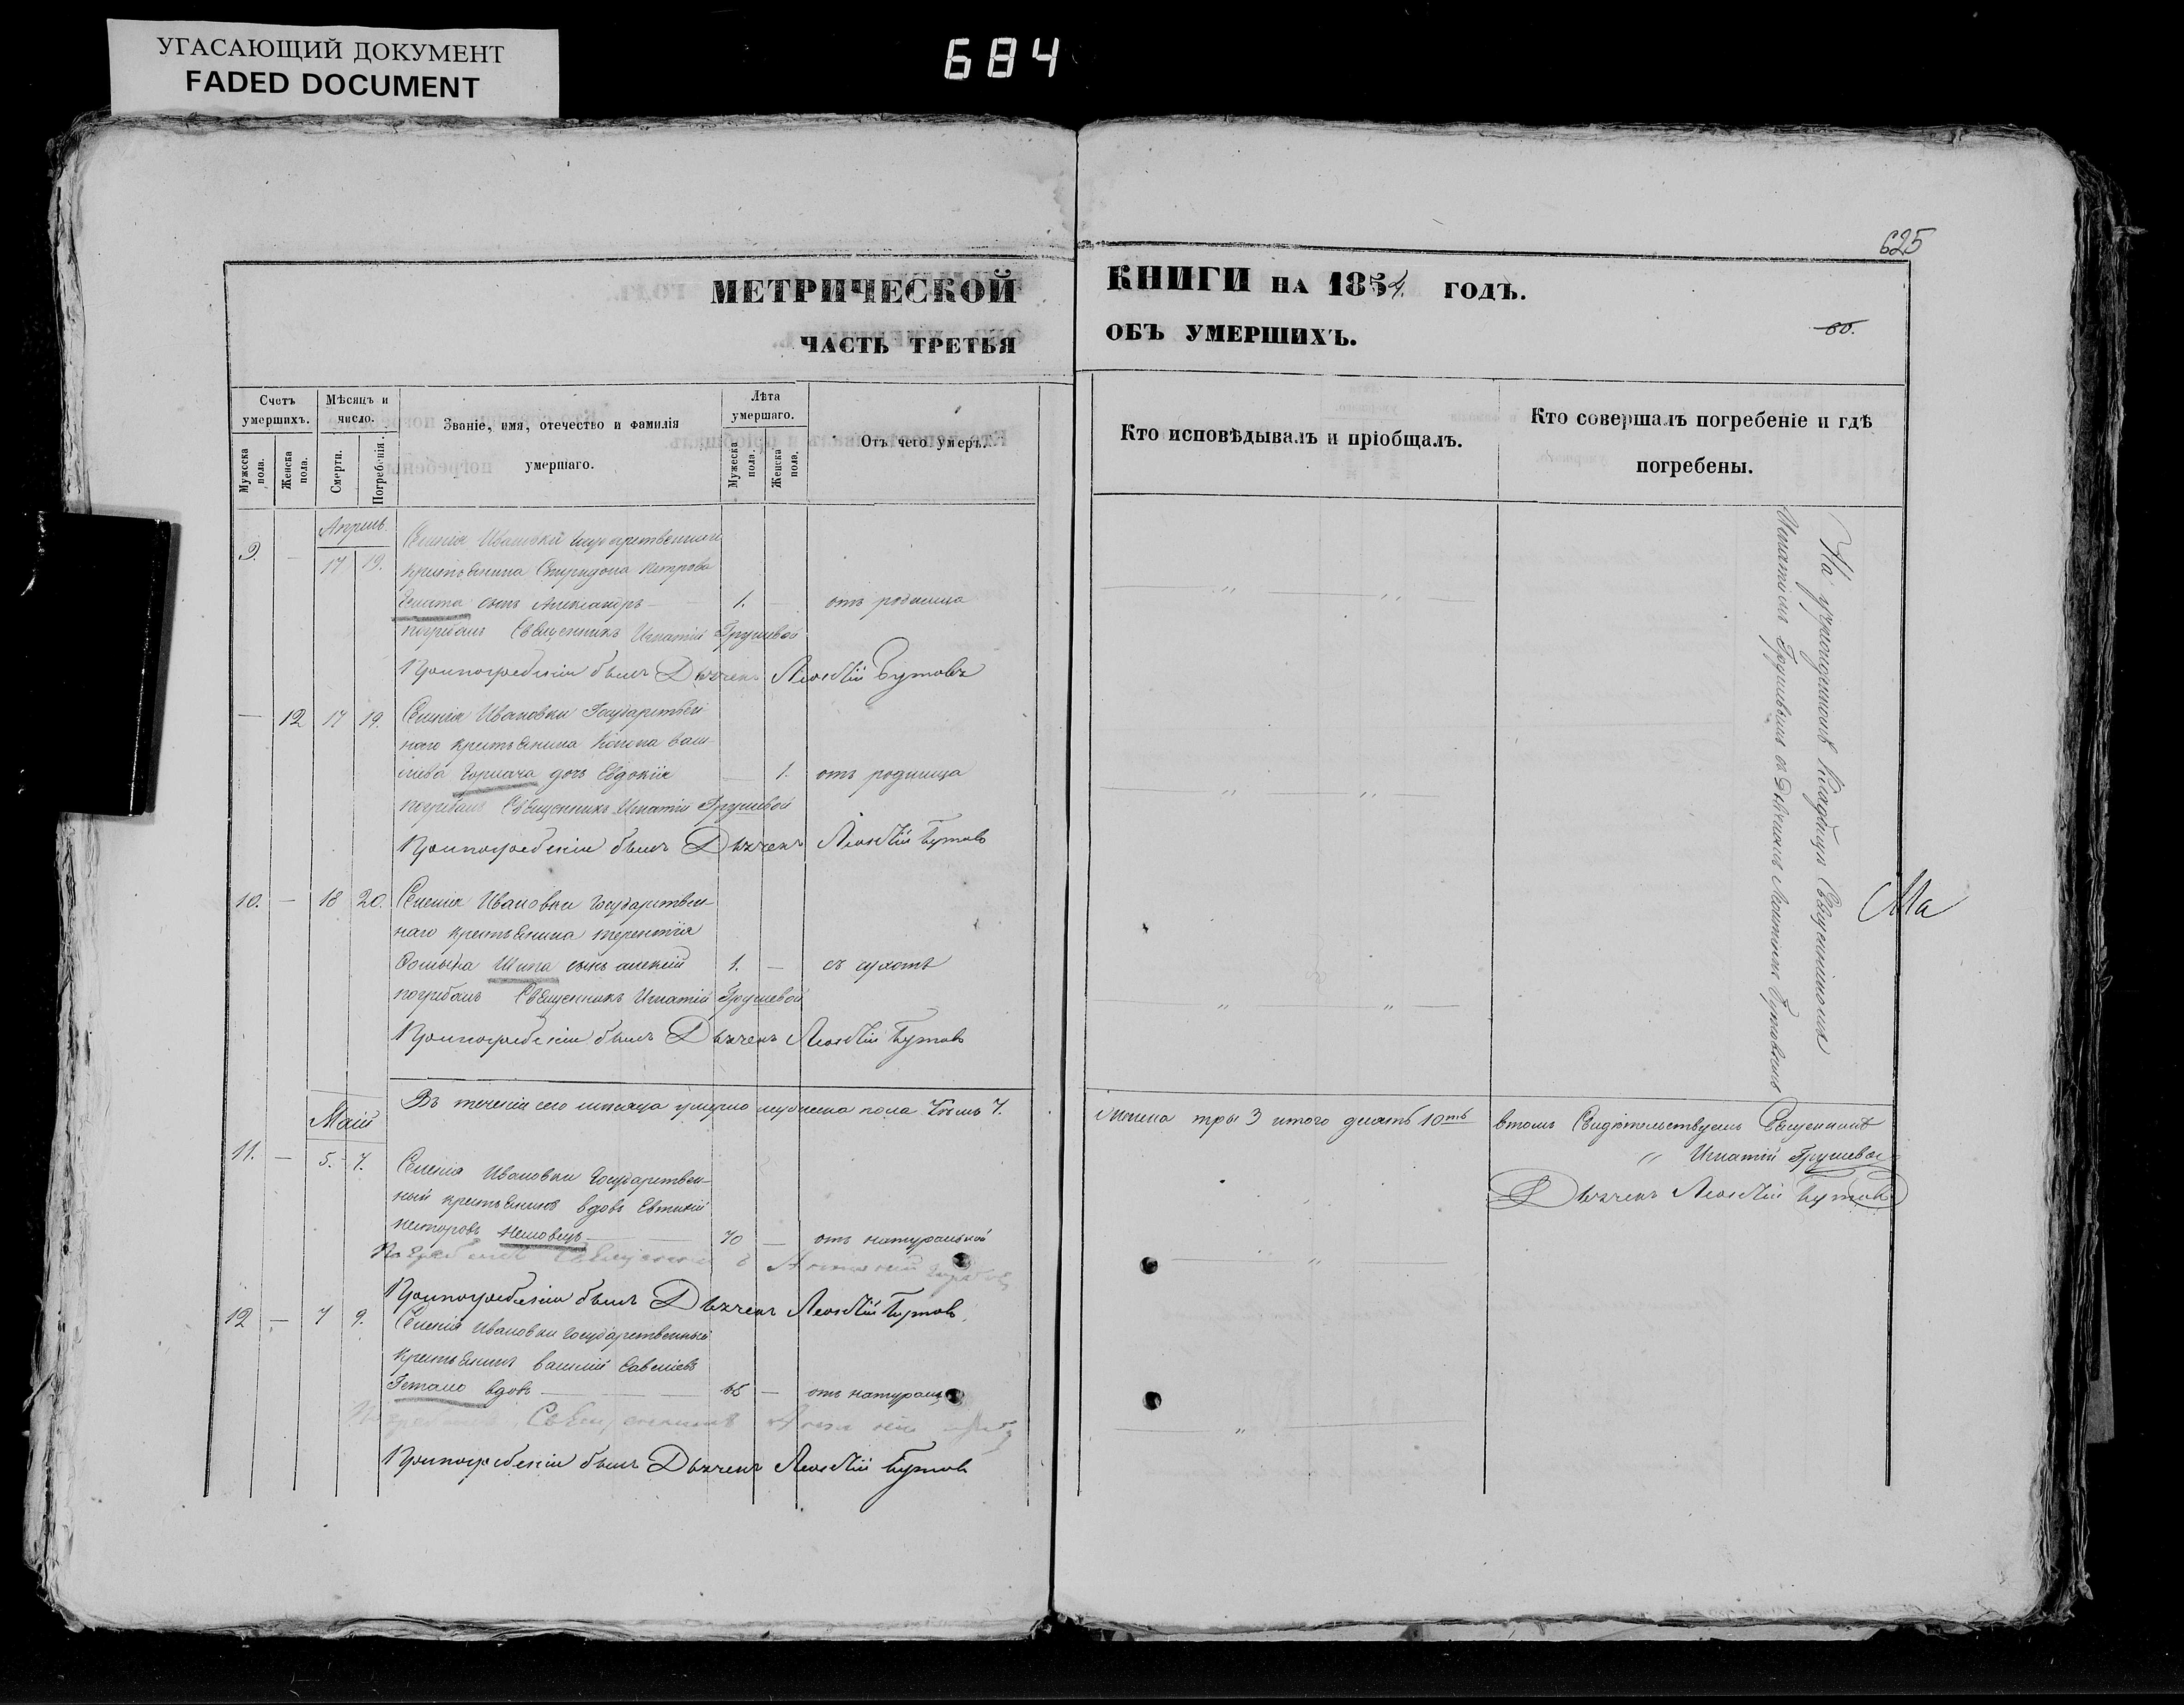 УГАСАЮЩИЙ ДОКУМЕНТ
FADED DOCUMENT
684
625
МЕТРИЧЕСКОЙ
ЧАСТЬ ТРЕТЬЯ
КНИГИ НА 1854. ГОДЪ.
ОБЪ УМЕРШИХЪ.
60.
Счетъ умершихъ.
Мужеска пола.
Женска пола.
Мѣсяцъ и число.
Смерти.
Погребенія.
Званіе, имя, отечество и фамилія
умершаго.
Лѣта умершаго.
Мужеска пола.
Женска пола.
Отъ чего умеръ.
Кто исповѣдывалъ и пріобщалъ.
Кто совершалъ погребеніе и гдѣ
погребены.
Апрель
9. — 17 19. Селенія Ивановки государственнаго
крестьянина Спиридона Петрова
сынъ Александръ — 1. — отъ родимца
погребалъ Священникъ Игнатій Грушевой
При погребеніи былъ Дьячекъ Леонтій Бутовъ
— 12 17 19. Селенія Ивановки Государствен
наго крестьянина Конона Васи-
ліева дочь Евдокія — 1. отъ родимца
погребалъ Священникъ Игнатій Грушевой
При погребеніи былъ Дьячекъ Леонтій Бутовъ
10. — 18 20. Селенія Ивановки Государствен-
наго крестьянина Терентія
Шипа сынъ Алексій 1. — съ сухотъ
погребалъ Священникъ Игнатій Грушевой
При погребеніи былъ Дьячекъ Леонтій Бутовъ
На кладбищѣ Священникомъ
Игнатіемъ Грушевымъ съ Дьячкомъ Леонтіемъ Бутовымъ
Ма
Въ теченіи сего месяца умерло мужеска пола семь 7.
женска три 3 итого десять 10ть
втомъ Свидѣтельствуемъ Священникъ
Игнатій Грушевой
Дьячекъ Леонтій Бутовъ
Маій
11. — 5. 7. Селенія Ивановки Государствен-
ный крестьянинъ вдовъ Евтихій
Несторовъ — 70 — отъ натуральной
Священникъ
При погребеніи былъ Дьячекъ Леонтій Бутовъ
12 — 7 9. Селенія Ивановки Государственный
крестьянинъ Василій Савеліевъ
Гетало вдовъ — 65 — отъ натурал
Священникъ
При погребеніи былъ Дьячекъ Леонтій Бутовъ